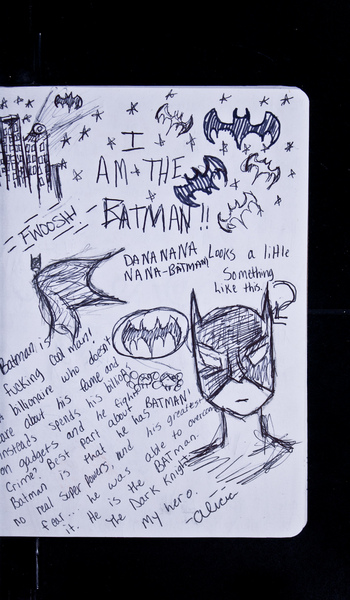 I
AM THE
BATMAN!!
FWOOSH!
DANANANA
NANA-BATMAN!
Looks a little
Something
Like this.
?
Batman is
fucking cool man!
A billionaire who doesn't
care about his fame and
insteads spends his billions
on gadgets and he fights
Crime? Best part about BATMAN!
Batman is that he has
no real super powers, and his greatest
fear... he was able to overcome
it. He is the Batman.
The Dark Knight.
My hero.
-alicia